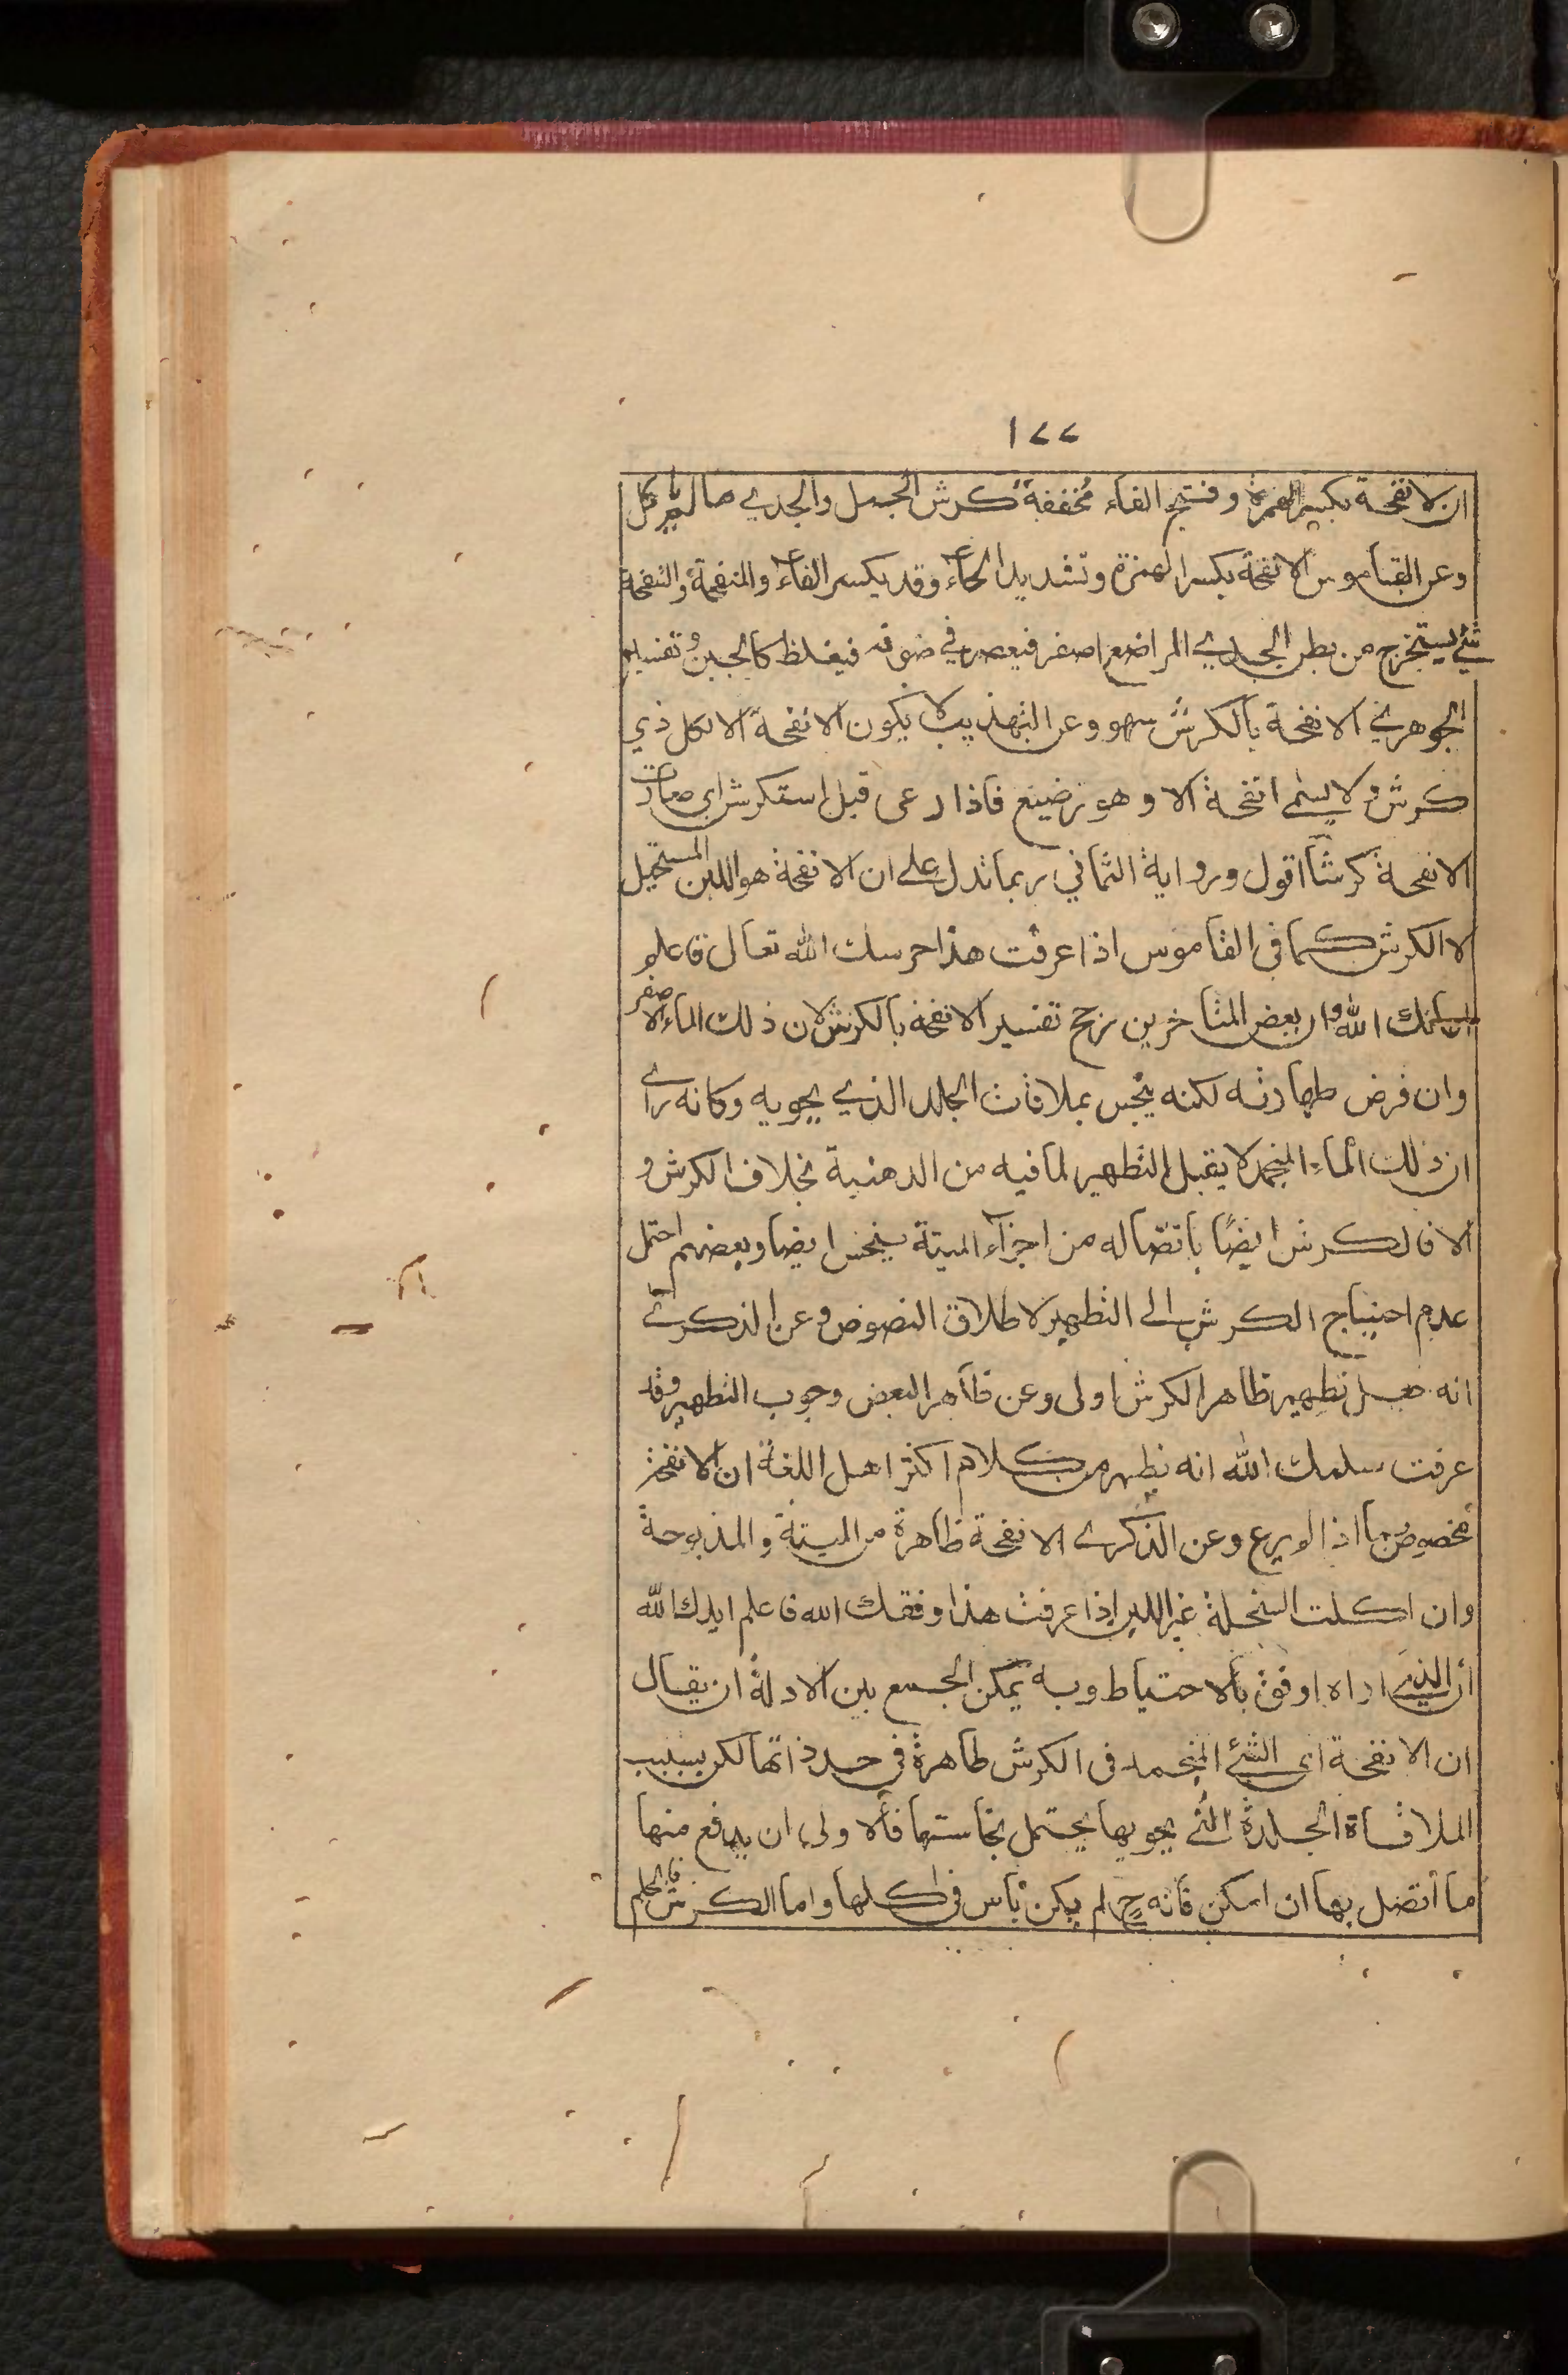 ١٧٧
ان الانفحة بكسر الهمزة وفتح الفاء مخففة كرش الجمل والجدي ما لم ياكل
وعن القاموس الانفحة بكسر الهمزة وتشديد الحاء وقد يكسر الفاء والمنفحة والنفحة
شئ يستخرج من بطن الجدي الراضع اصفر فيعصر في صوفه فيغلظ كالجبن وتفسير
الجوهري الانفحة بالكرش سهو وعن التهذيب لا يكون الانفحة الا لكل ذي
كرش ولا يسمى انفحة الا وهو رضيع فاذا رعى قيل استكرش اي صارت
الانفحة كرشا اقول ورواية الثمالي ربما تدل على ان الانفحة هو اللبن المستحيل
لا الكرش كما في القاموس اذا عرفت هذا حرسك الله تعال فاعلم
الله وان بعض المتاخرين رجح تفسير الانفحة بالكرش لان ذلك الماء الاصفر
وان فرض طهارته لكنه ينجس بملاقات الجلد الذي يحويه وكانه راى
ان ذلك الماء المنجمد لا يقبل التطهير لما فيه من الدهنية بخلاف الكرش و
الا فالكرش ايضًا باتصاله من اجزاء الميتة ينجس ايضا وبعضهم احتمل
عدم احتياج الكرش الى التطهير لاطلاق النصوص وعن الذكرى
انه جعل تطهير ظاهر الكرش اولى وعن ظاهر البعض وجوب التطهير وقد
عرفت سلمك الله انه يظهر من كلام اكثر اهل اللغة ان الانفحة
مخصوص بما اذا لم يرع وعن الذكرى الانفحة طاهرة من الميتة والمذبوحة
وان اكلت السخلة غير اللبن اذا عرفت هذا وفقك الله فاعلم ايدك الله
ان الذي اراه اوفق بالاحتياط وبه يمكن الجمع بين الادلة ان يقال
ان الانفحة اى الشئ المنجمد فى الكرش طاهرة في حد ذاتها لكن بسبب
الملاقاة الجلدة التي يحويها يحتمل نجاستها فالاولى ان يدفع منها
ما اتصل بها ان امكن فانه ح لم يكن باس فى اكلها واما الكرش فالحكم